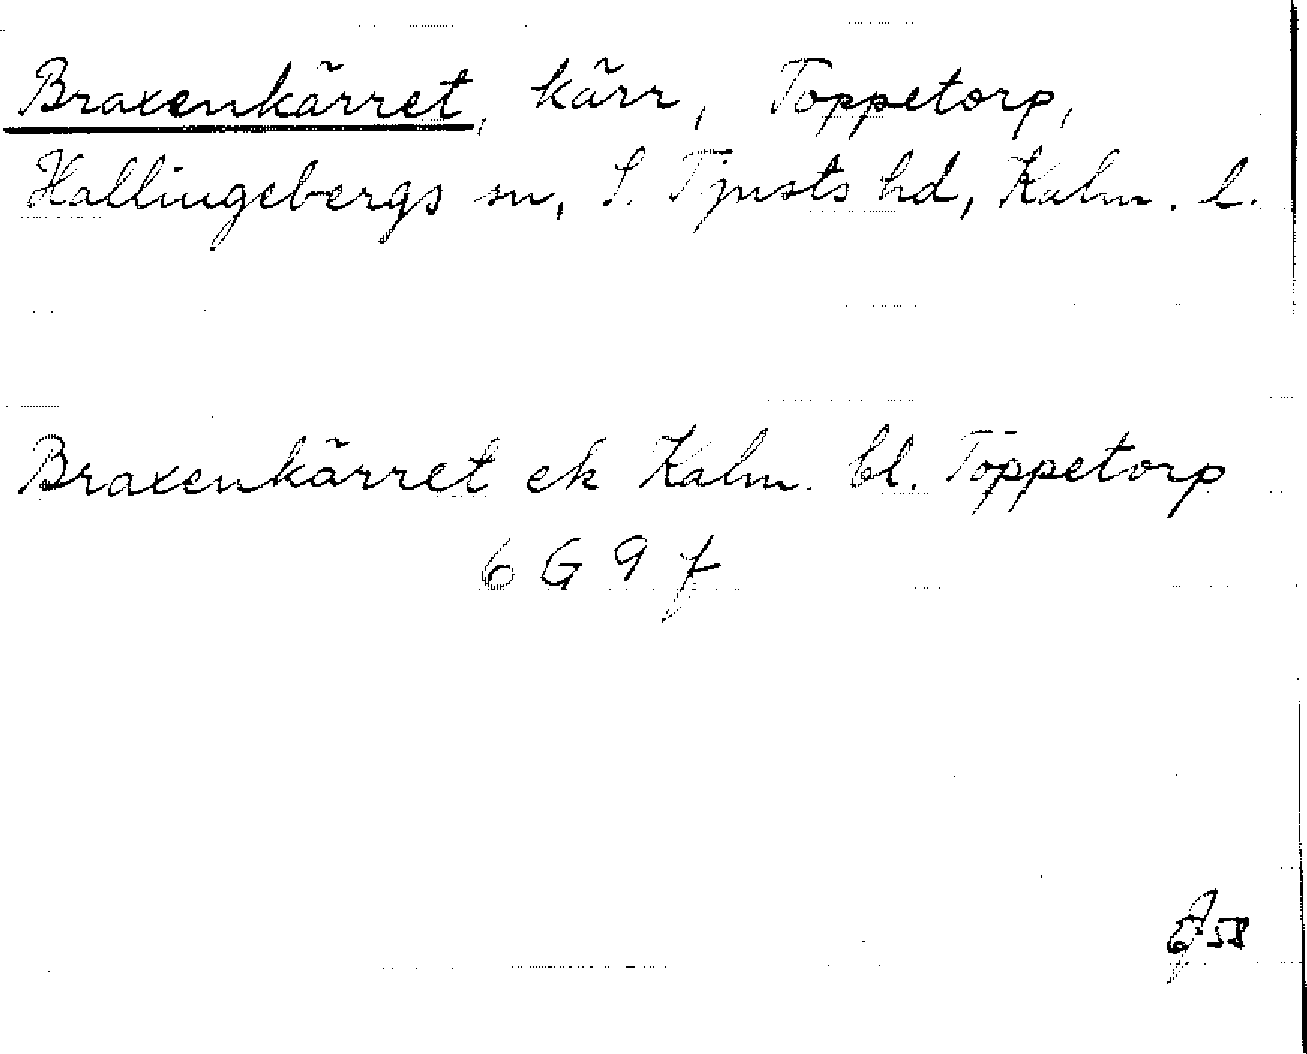 Braxenkärret, kärr, Toppetorp,
Hallingebergs sn, S. Tjusts hd, Kalm. l.
Braxenkärret ek Kalm. bl. Töppetorp
6 G 9 f